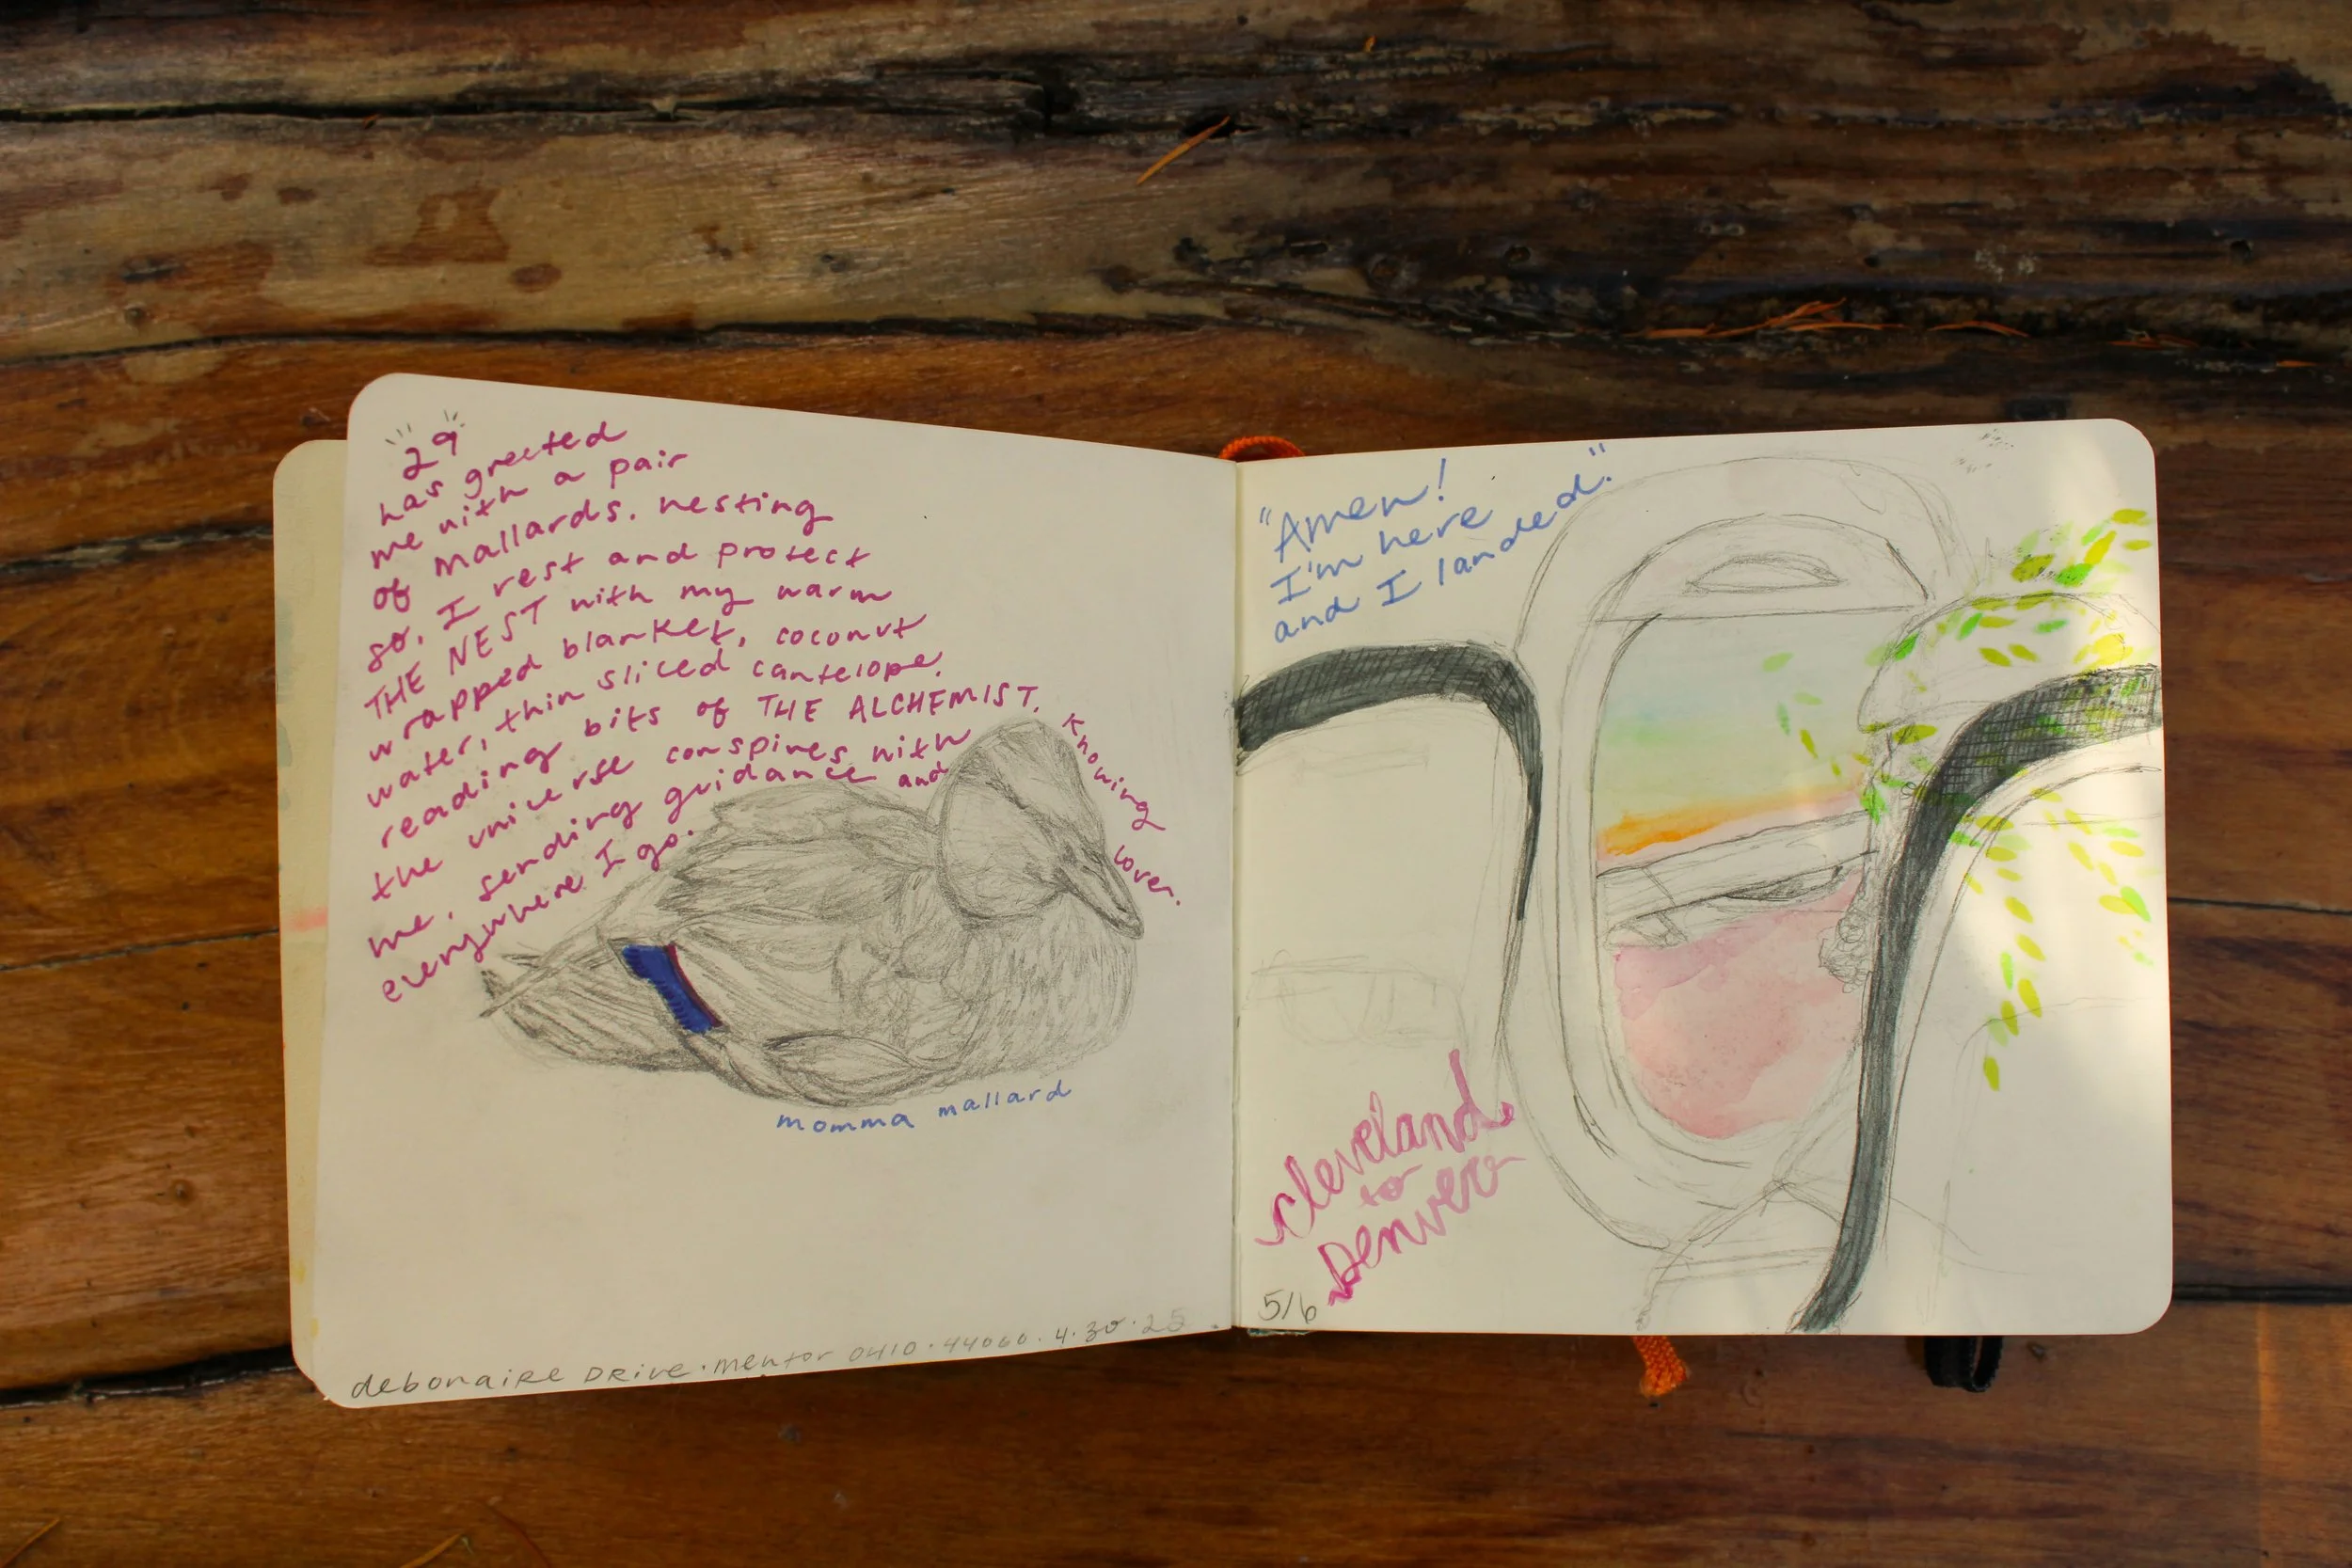 29
has greeted
me with a pair
of mallards. nesting
so, I rest and protect
THE NEST with my warm
wrapped blanket, coconut
water, thin sliced cantelope.
reading bits of THE ALCHEMIST. Knowing
the universe conspires with
me, sending guidance and
everywhere I go.
lover.
momma mallard
debonaire DRive · mentor OHIO · 44060 · 4·30·25
"Amen!
I'm here
and I landed."
Cleveland
to
Denver
5/6